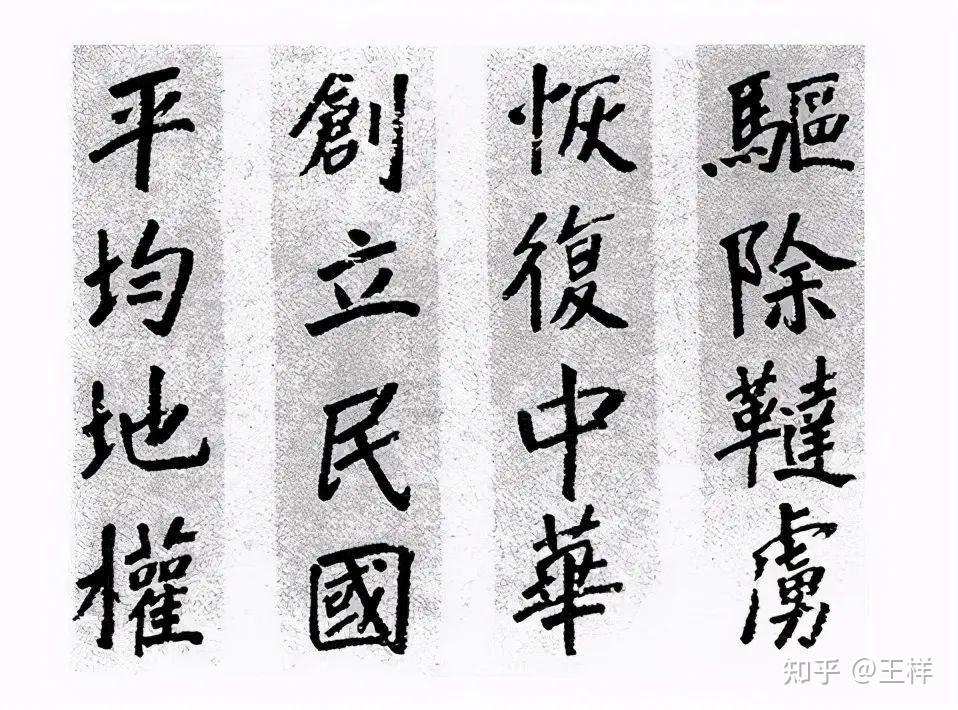 驅除韃虜
恢復中華
創立民國
平均地權
知乎 @王样